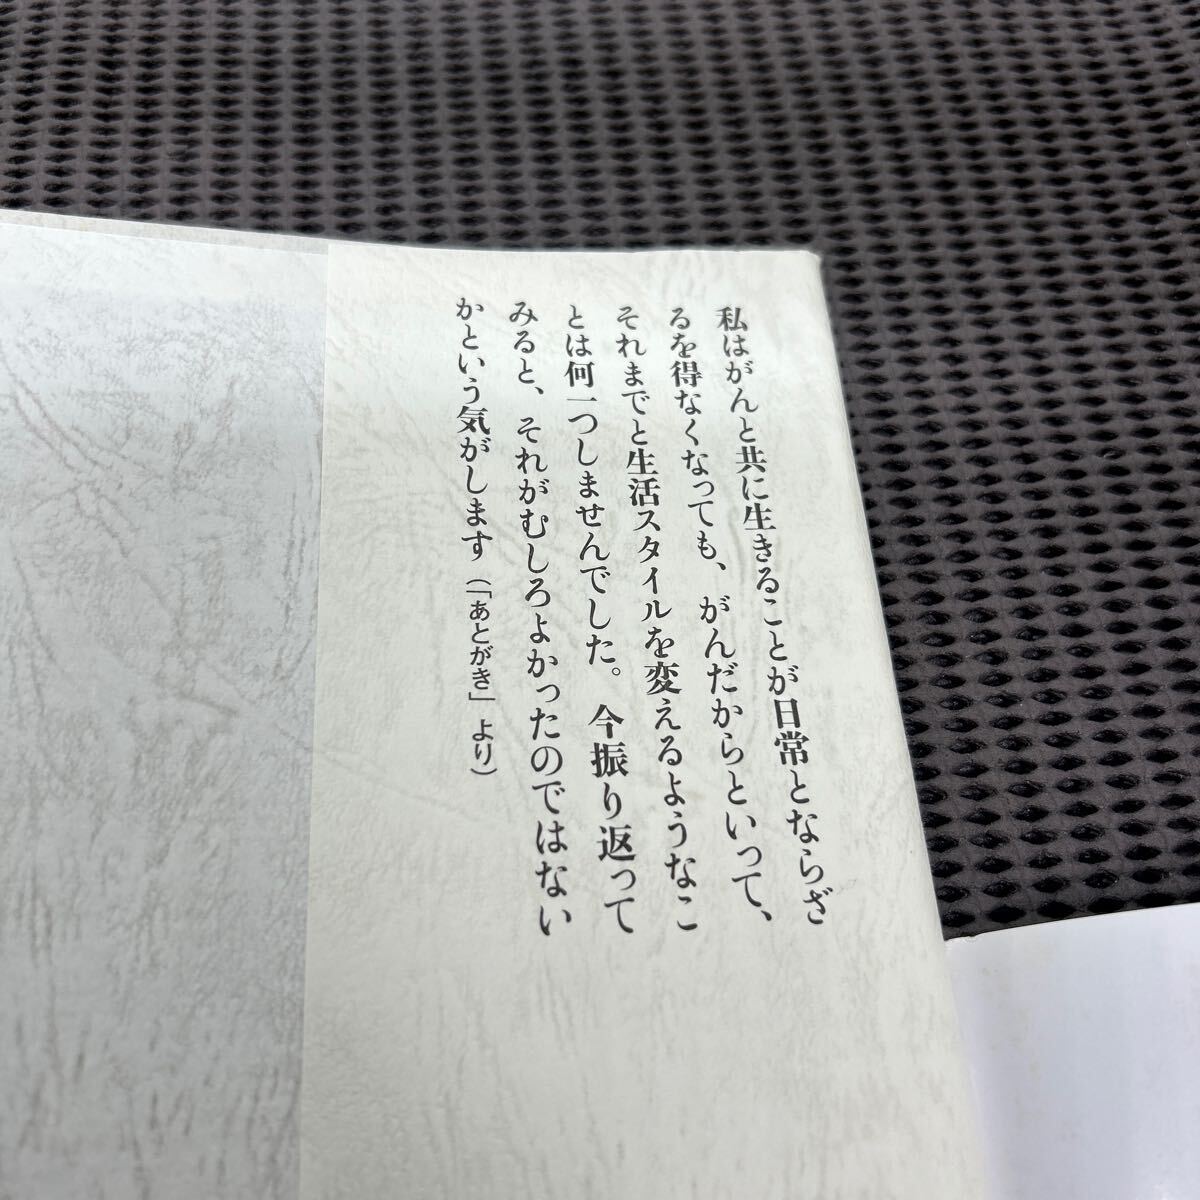 私はがんと共に生きることが日常とならざ
るを得なくなっても、がんだからといって、
それまでと生活スタイルを変えるようなこ
とは何一つしませんでした。今振り返って
みると、それがむしろよかったのではない
かという気がします（「あとがき」より）